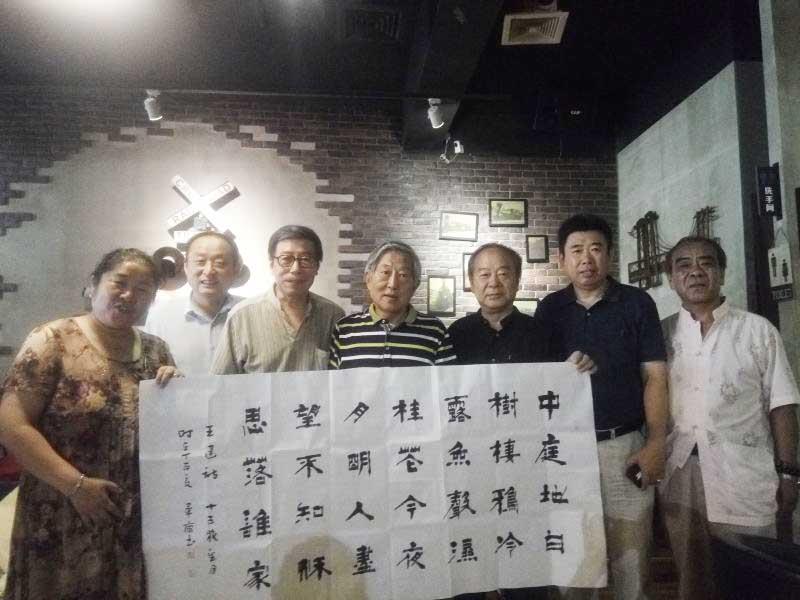 中庭地白
樹棲鴉冷
露無聲濕
桂花今夜
月明人盡
望不知秋
思落誰家
王建詩 十五夜望月
时在丁酉夏
洗手间
TOILET